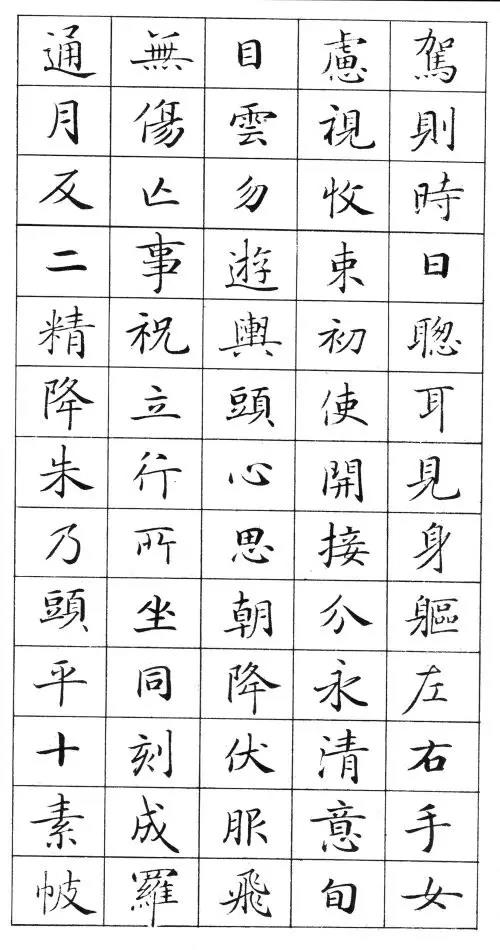 駕則時日聰耳見身軀左右手女
慮視收束初使開接分永清意旬
目雲勿遊輿頭心思朝降伏服飛
無傷亾事祝立行所坐同刻成羅
通月反二精降朱乃頭平十素帔